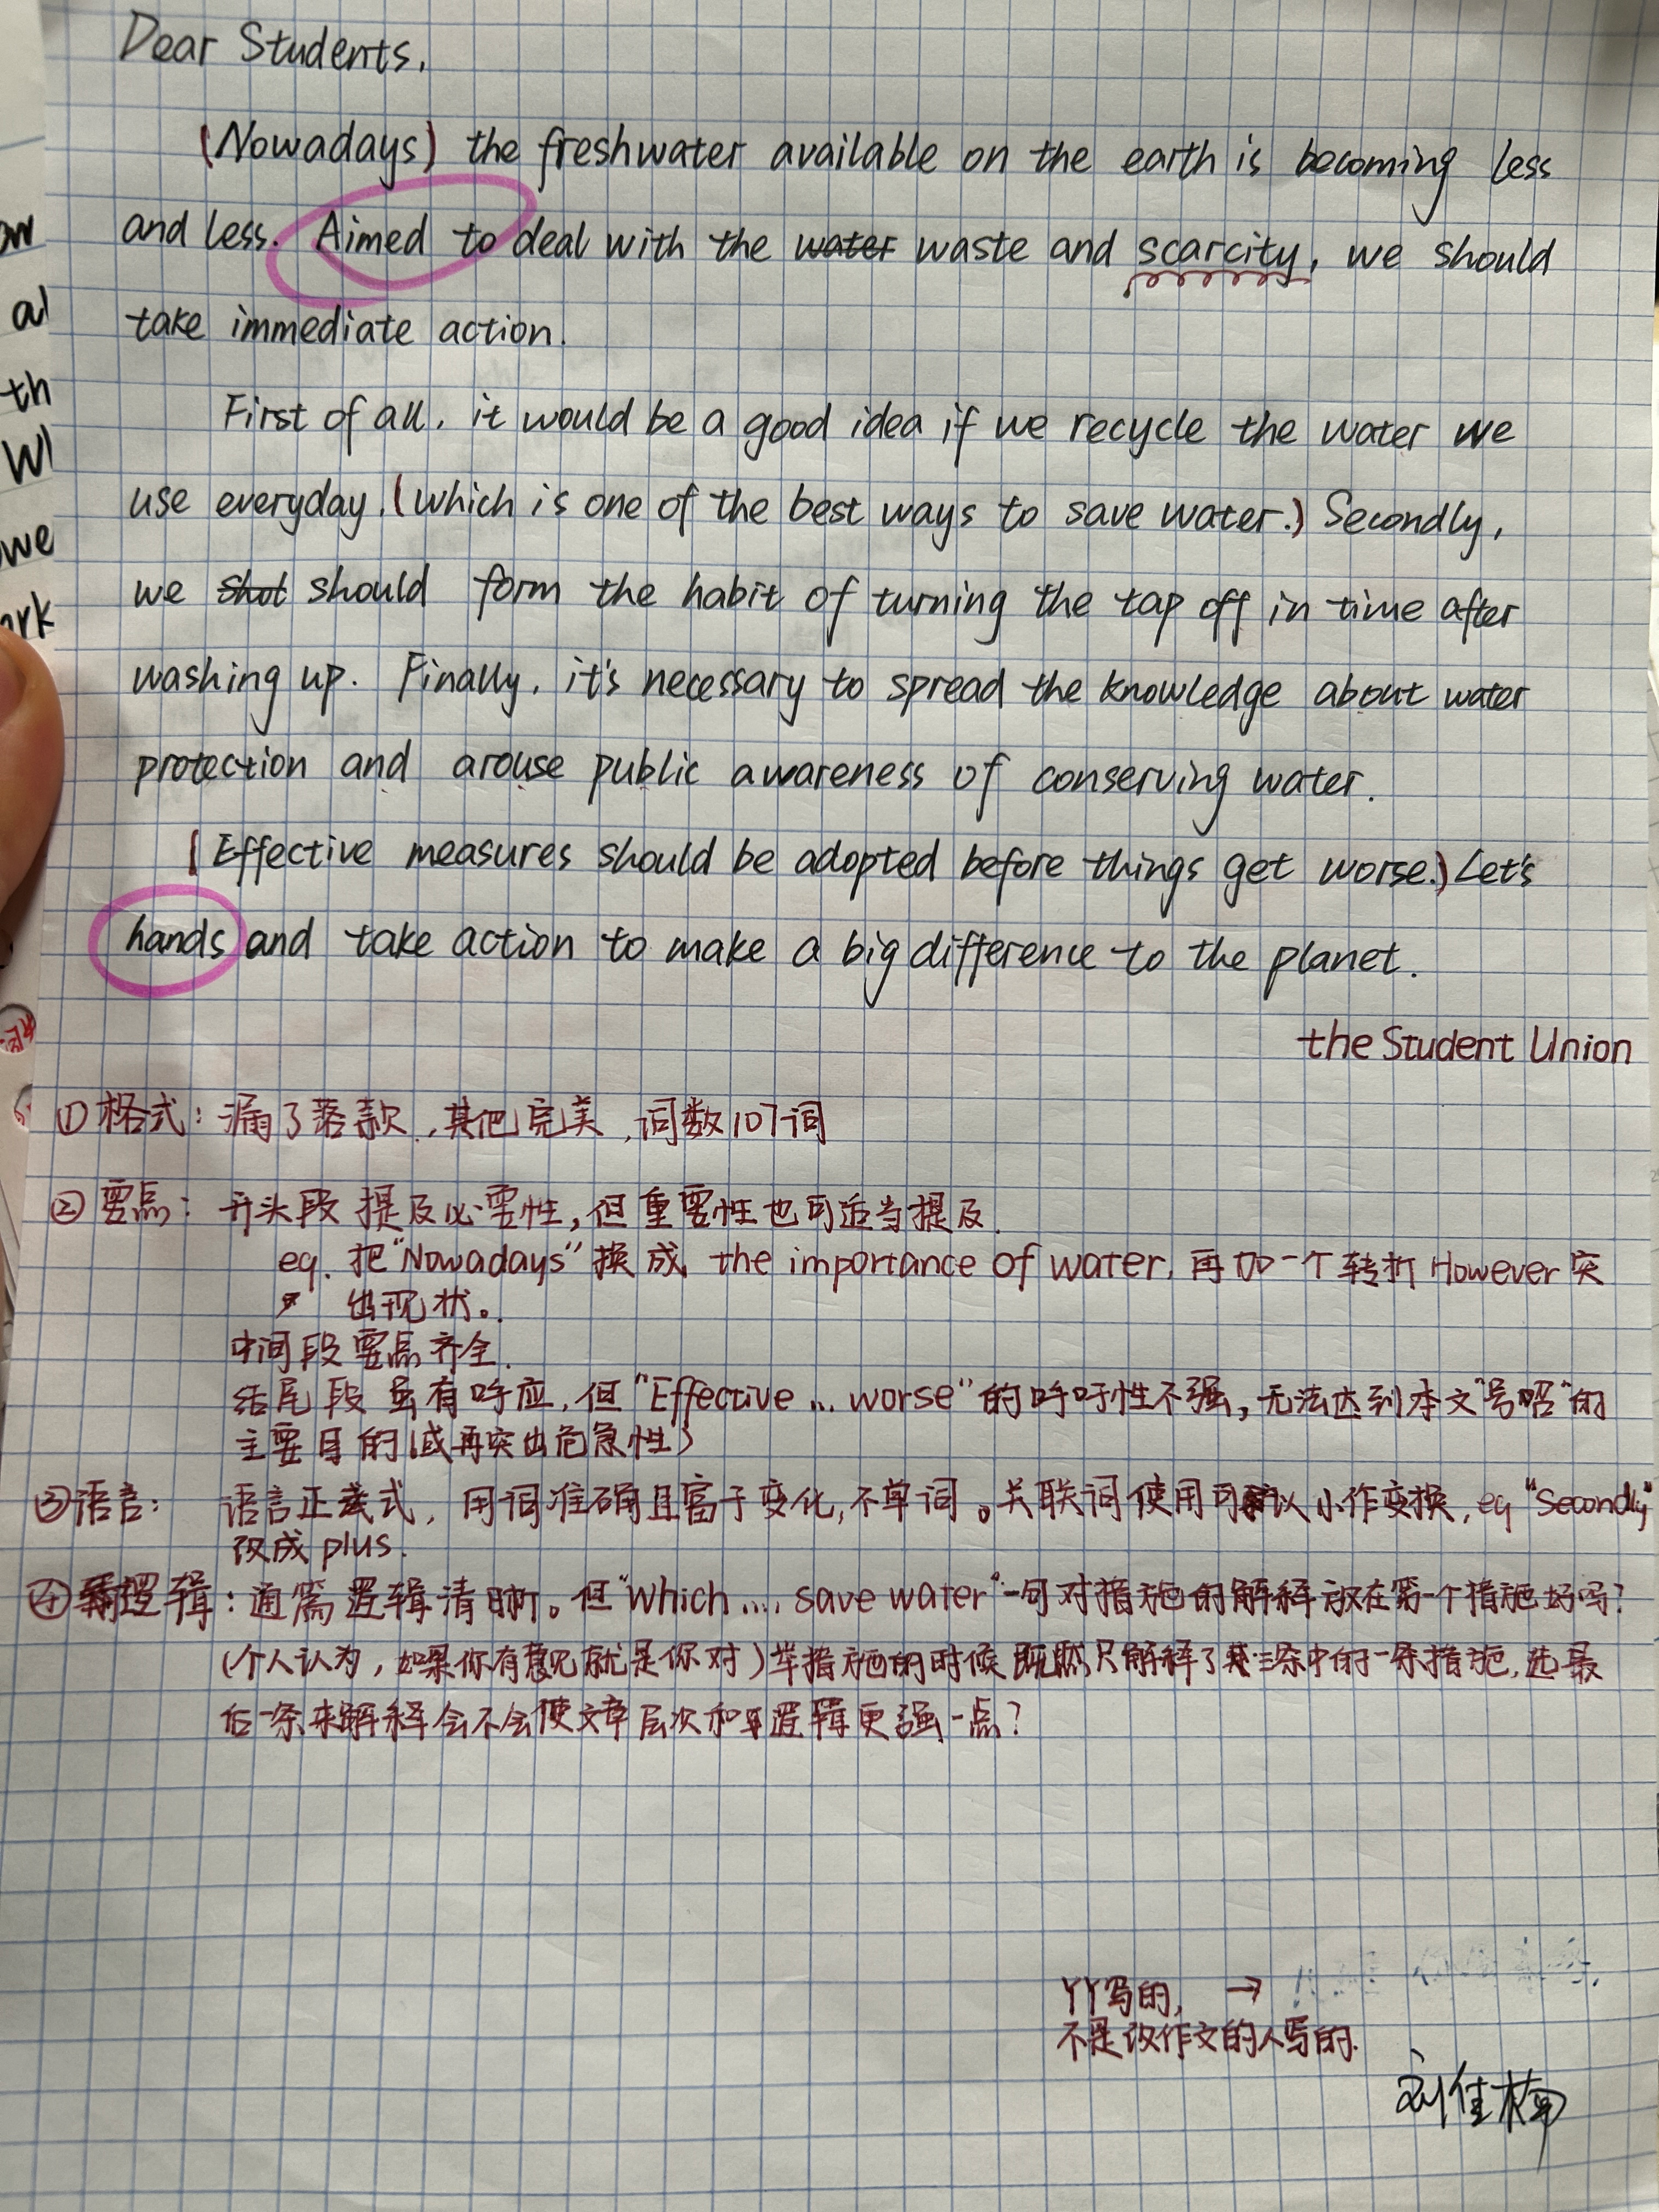 Dear Students,
(Nowadays) the freshwater available on the earth is becoming less
and less. Aimed to deal with the water waste and scarcity, we should
take immediate action.
First of all, it would be a good idea if we recycle the water we
use everyday, (which is one of the best ways to save water.) Secondly,
we shot should form the habit of turning the tap off in time after
washing up. Finally, it's necessary to spread the knowledge about water
protection and arouse public awareness of conserving water.
(Effective measures should be adopted before things get worse.) Let's
hands and take action to make a big difference to the planet.
the Student Union
①格式：漏了落款，其他完美，词数107词
②要点：开头段提及必要性，但重要性也可适当提及.
eg. 把"Nowadays"换成 the importance of water, 再加一个转折 However 突
出现状。
中间段要点齐全.
结尾段虽有呼应，但"Effective ... worse"的呼吁性不强，无法达到本文"号召"的
主要目的(或再突出危急性)
③语言：语言正式，用词准确且富于变化，不单词。关联词使用可以小作变换，eg "Secondly"
改成 plus.
④逻辑：通篇逻辑清晰。但"which .... save water"一句对措施的解释放在第一个措施好吗？
(个人认为，如果你有意见就是你对)举措施的时候既然只解释了三条中的一条措施，选最
后一条来解释会不会使文章层次和逻辑更强一点？
丫丫写的, →
不是改作文的人写的.
刘佳楠
ow
al
th
Wl
we
ork